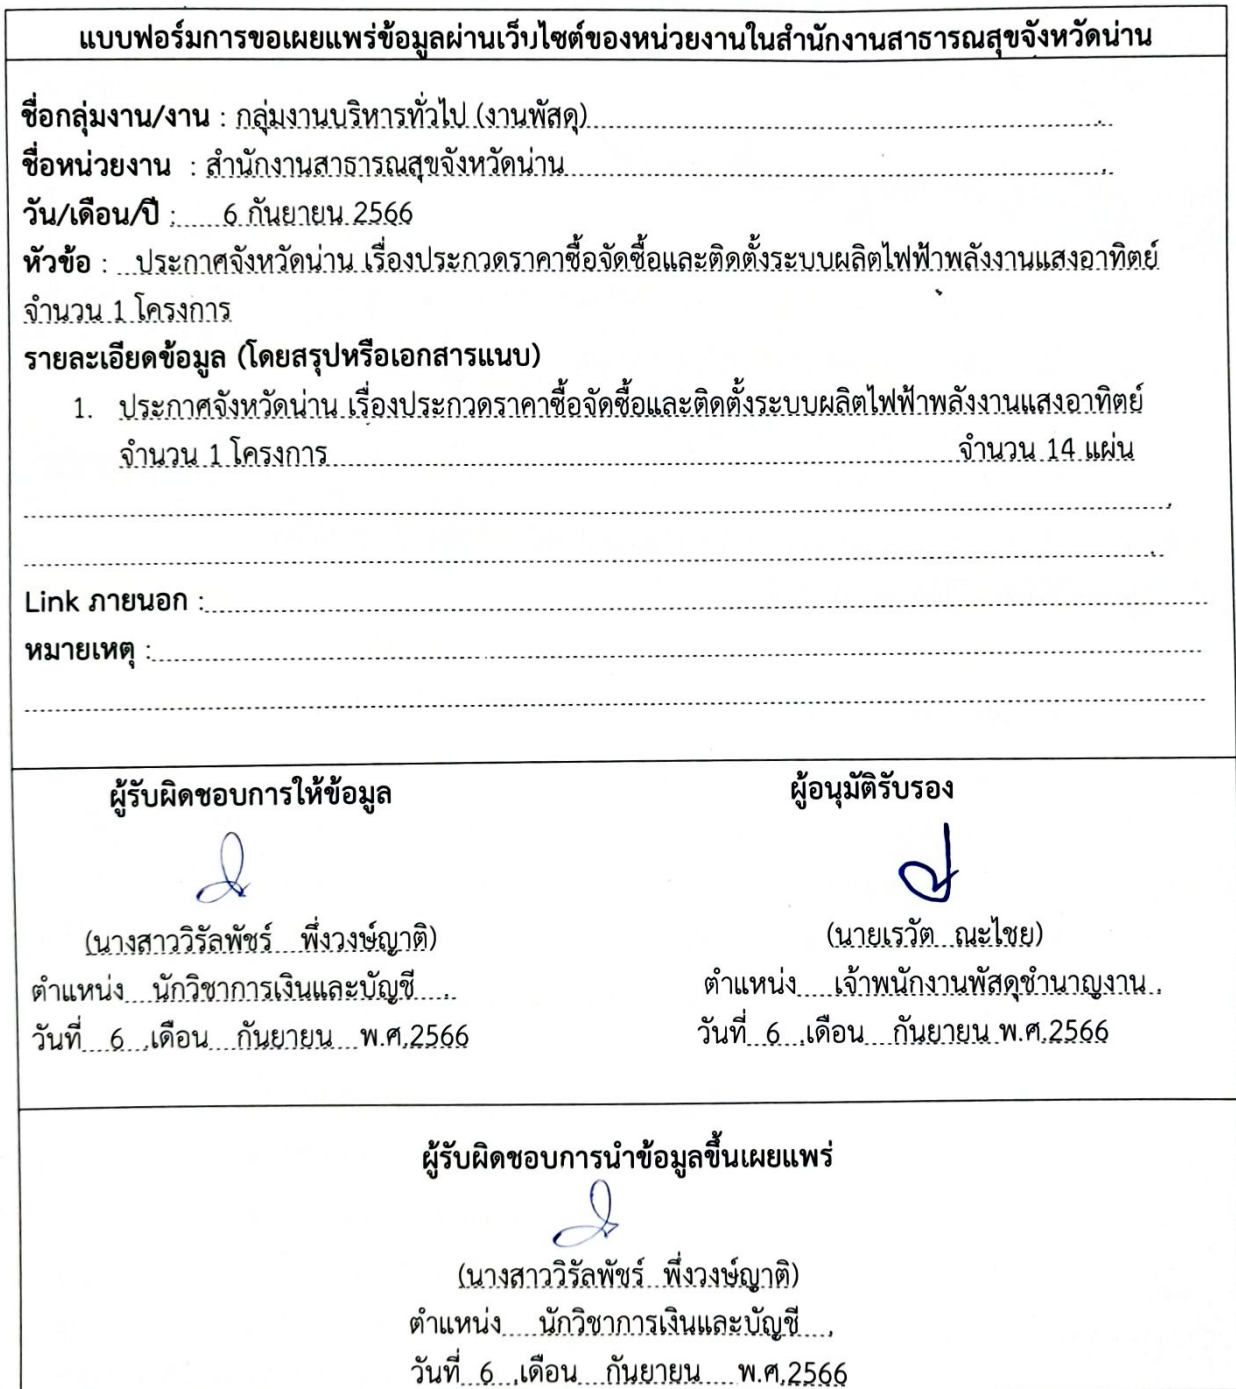 แบบฟอร์มการขอเผยแพร่ข้อมูลผ่านเว็บไซต์ของหน่วยงานในสำนักงานสาธารณสุขจังหวัดน่าน
ชื่อกลุ่มงาน/งาน : กลุ่มงานบริหารทั่วไป (งานพัสดุ)
ชื่อหน่วยงาน : สำนักงานสาธารณสุขจังหวัดน่าน
วัน/เดือน/ปี : 6 กันยายน 2566
หัวข้อ : ประกาศจังหวัดน่าน เรื่องประกวดราคาซื้อจัดซื้อและติดตั้งระบบผลิตไฟฟ้าพลังงานแสงอาทิตย์
จำนวน 1 โครงการ
รายละเอียดข้อมูล (โดยสรุปหรือเอกสารแนบ)
1. ประกาศจังหวัดน่าน เรื่องประกวดราคาซื้อจัดซื้อและติดตั้งระบบผลิตไฟฟ้าพลังงานแสงอาทิตย์
จำนวน 1 โครงการ จำนวน 14 แผ่น
Link ภายนอก :
หมายเหตุ :
ผู้รับผิดชอบการให้ข้อมูล
(นางสาววิรัลพัชร์ พึ่งวงษ์ญาติ)
ตำแหน่ง นักวิชาการเงินและบัญชี
วันที่ 6 เดือน กันยายน พ.ศ.2566
ผู้อนุมัติรับรอง
(นายเรวัต ณะไชย)
ตำแหน่ง เจ้าพนักงานพัสดุชำนาญงาน
วันที่ 6 เดือน กันยายน พ.ศ.2566
ผู้รับผิดชอบการนำข้อมูลขึ้นเผยแพร่
(นางสาววิรัลพัชร์ พึ่งวงษ์ญาติ)
ตำแหน่ง นักวิชาการเงินและบัญชี
วันที่ 6 เดือน กันยายน พ.ศ.2566